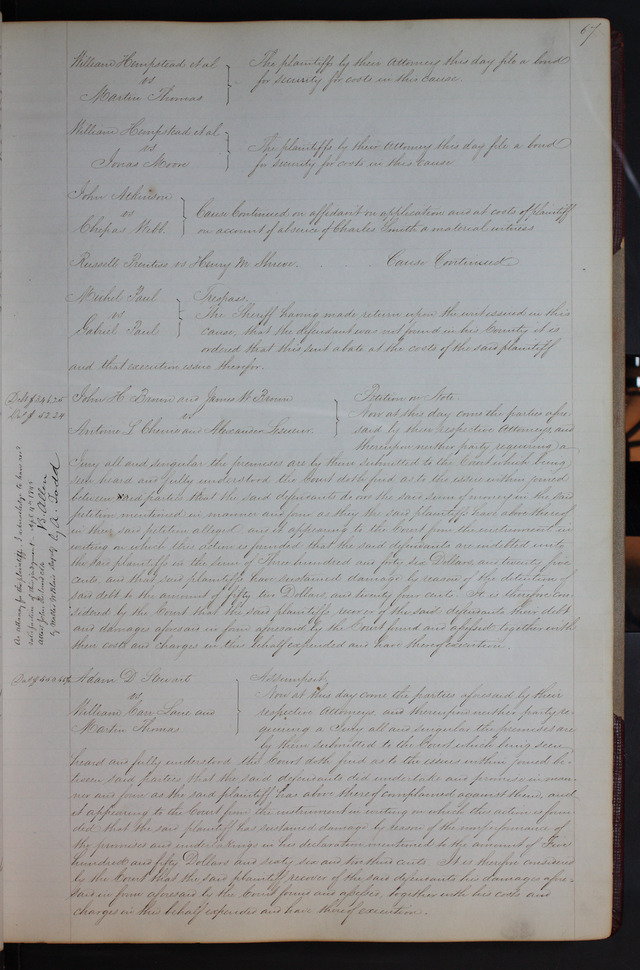 67
William Hempstead et al
vs
Martin Thomas
The plaintiffs by their Attorney this day file a bond
for security for costs in this cause.
William Hempstead et al
vs
Jonas Moon
The plaintiffs by their Attorney this day file a bond
for security for costs in this cause
John Atkinson
vs
Webb
Cause Continued on affidavit on application and at costs of plaintiff
on account of absence of Charles Smith a material witness
Russell Prentiss vs Henry M Shreve. Cause Continued
Michel Paul
vs
Gabriel Paul
Trespass.
The Sheriff having made return upon the writ issued in this
cause, that the defendant was not found in his County it is
ordered that this suit abate at the costs of the said plaintiff
and that execution issue therefor.
John H Brown and James W Brown
vs
Antoine L Chenie and Alexander
Petition on Note.
Now at this day come the parties afore-
said by their respective Attorneys and
thereupon neither party requiring a
Jury all and singular the premises are by them submitted to the Court which being
seen heard and fully understood the Court doth find as to the issue within joined
between said parties that the said defendants do owe the said sum of money in the said
petition mentioned in manner and form as they the said plaintiffs have above thereof
in their said petition alleged and it appearing to the Court from the instrument in
writing on which this action is founded that the said defendants are indebted unto
the said plaintiffs in the sum of Three hundred and forty six Dollars and twenty five
cents, and that said plaintiffs have sustained damage by reason of the detention of
said debt to the amount of fifty two Dollars and twenty four cents. It is therefore con-
sidered by the Court that the said plaintiffs recover of the said defendants their debt
and damages aforesaid in form aforesaid by the Court found and assessed together with
their costs and charges in this behalf expended and have thereof execution.
Debt $346.25
Da $ 52.24
Adam D Stewart
vs
William Carr Lane and
Martin Thomas
Assumpsit,
Now at this day come the parties aforesaid by their
respective Attorneys, and thereupon neither party re-
quiring a Jury all and singular the premises are
by them submitted to the Court which being seen
heard and fully understood the Court doth find as to the issues within joined be-
tween said parties that the said defendants did undertake and promise in man-
ner and form as the said plaintiff has above thereof complained against them, and
it appearing to the Court from the instrument in writing on which this action is foun-
ded that the said plaintiff has sustained damage by reason of the nonperformance of
the promises and undertakings in his declaration mentioned to the amount of Five
hundred and fifty Dollars and sixty six and two third cents. It is therefore considered
by the Court that the said plaintiff recover of the said defendants his damages afore-
said in form aforesaid by the Court found and assessed, together with his costs and
charges in this behalf expended and have thereof execution.